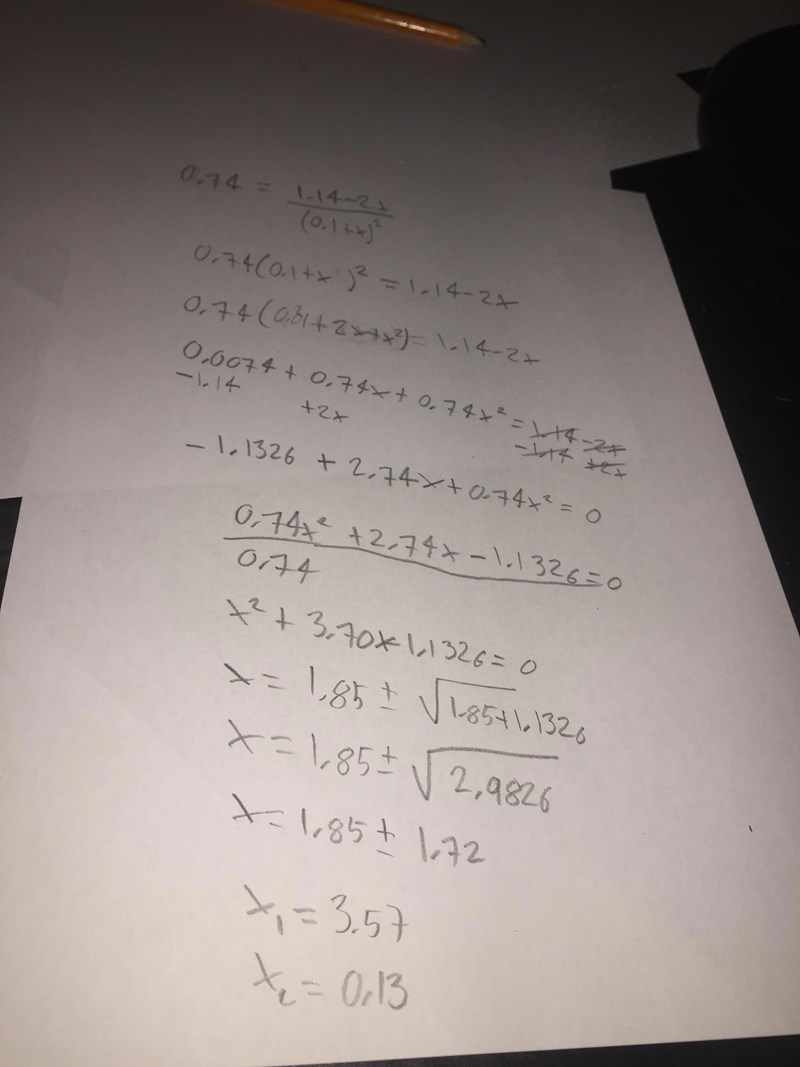 0.74 = (1.14-2x)/(0.1+x)²
0.74(0.1+x)² = 1.14-2x
0.74(0.01+2x+x²) = 1.14-2x
0.0074 + 0.74x + 0.74x² = 1.14-2x
-1.14 +2x -1.14 +2x
-1.1326 + 2.74x + 0.74x² = 0
0.74x² + 2.74x - 1.1326 = 0
0.74
x² + 3.70x 1.1326 = 0
x = 1.85 ± √1.85+1.1326
x = 1.85 ± √2,9826
x = 1.85 ± 1.72
x₁ = 3.57
x₂ = 0.13